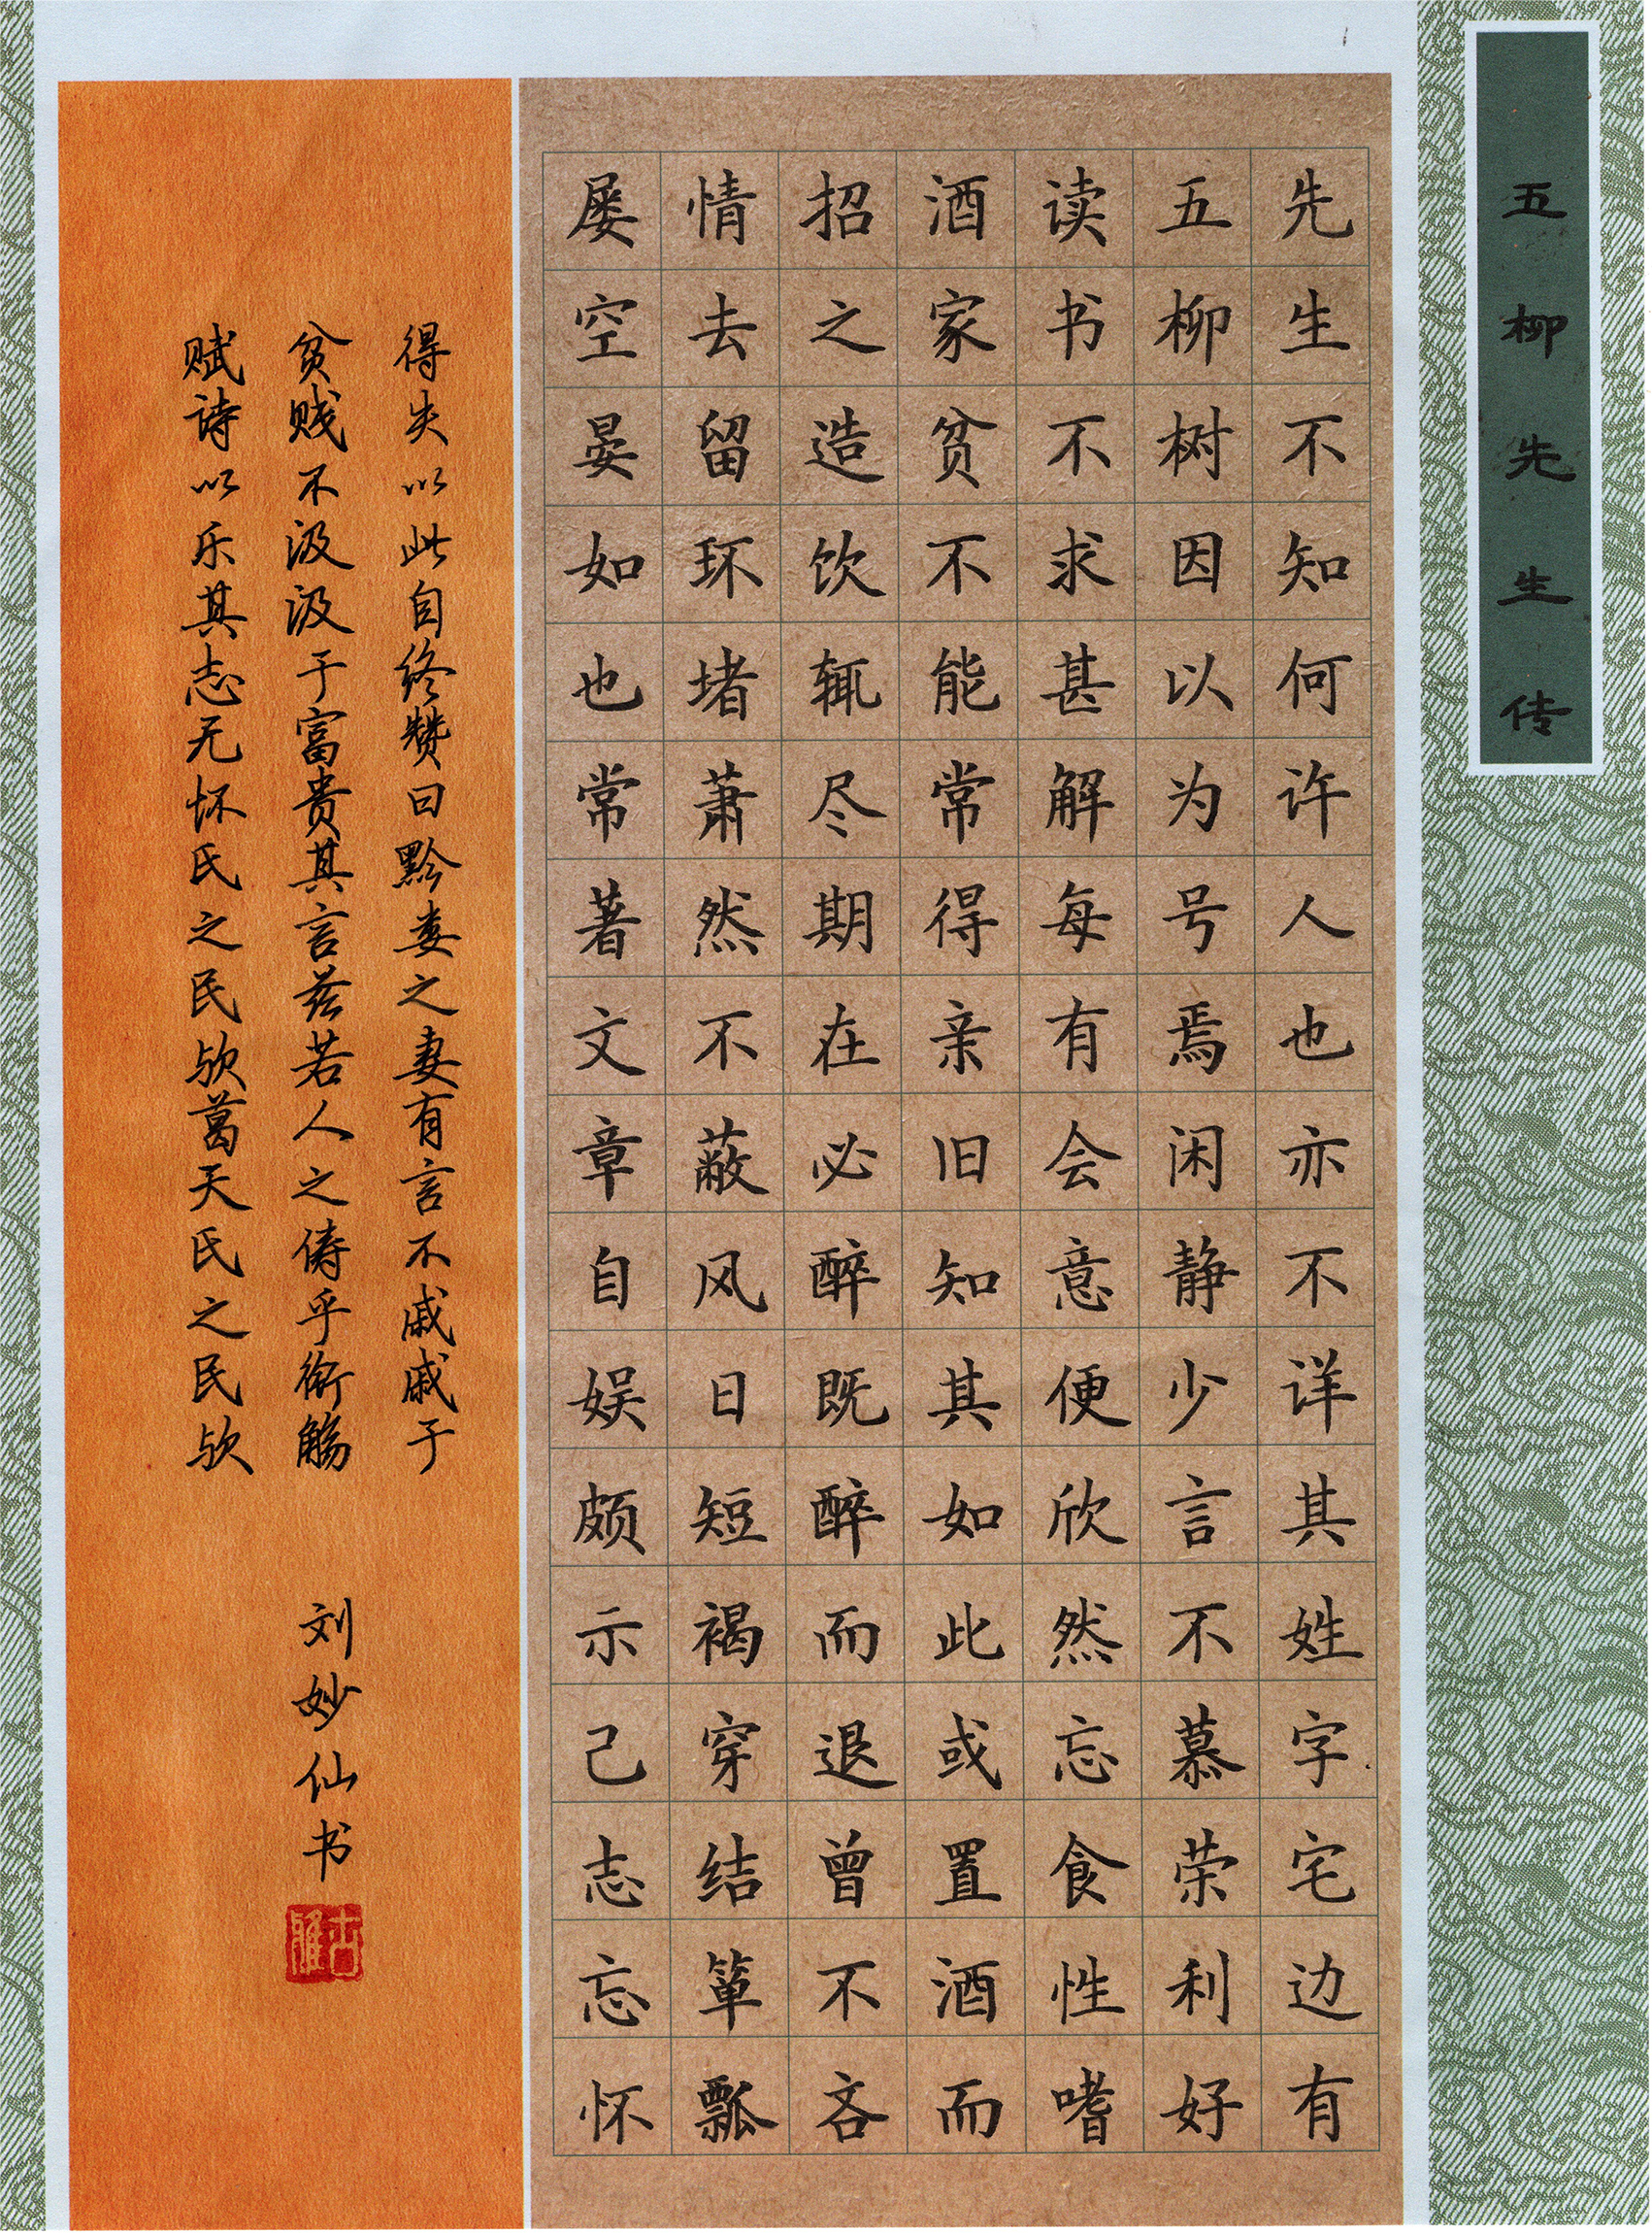 五柳先生传
先生不知何许人也亦不详其姓字宅边有
五柳树因以为号焉闲静少言不慕荣利好
读书不求甚解每有会意便欣然忘食性嗜
酒家贫不能常得亲旧知其如此或置酒而
招之造饮辄尽期在必醉既醉而退曾不吝
情去留环堵萧然不蔽风日短褐穿结箪瓢
屡空晏如也常著文章自娱颇示己志忘怀
得失以此自终赞曰黔娄之妻有言不戚戚于
贫贱不汲汲于富贵其言兹若人之俦乎衔觞
赋诗以乐其志无怀氏之民欤葛天氏之民欤
刘妙仙书
古雅